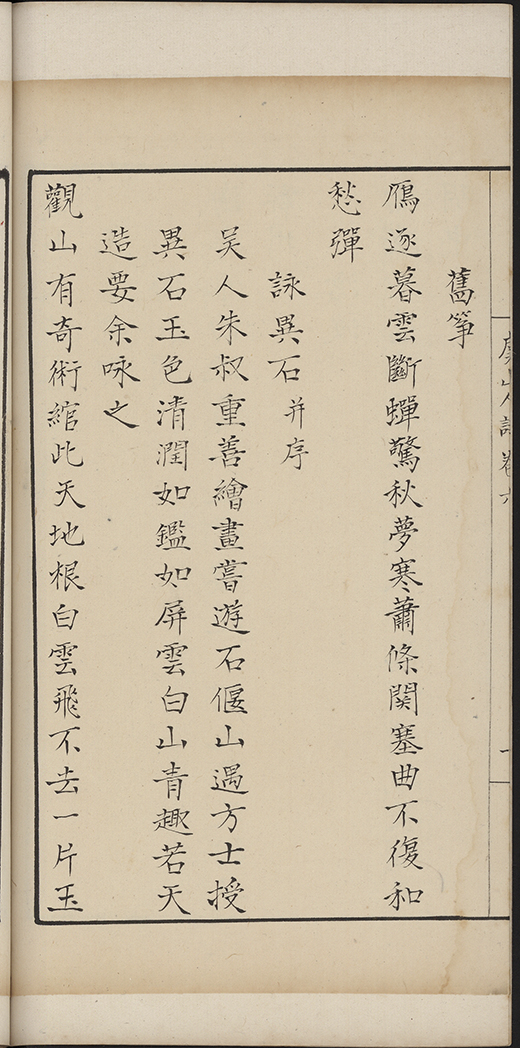 舊箏
鴈逐暮雲斷蟬驚秋夢寒蕭條関塞曲不復和
愁彈
詠異石并序
吴人朱叔重善繪畫嘗遊石偃山遇方士授
異石玉色清潤如鑑如屏雲白山青趣若天
造要余咏之
觀山有奇術綰此天地根白雲飛不去一片玉